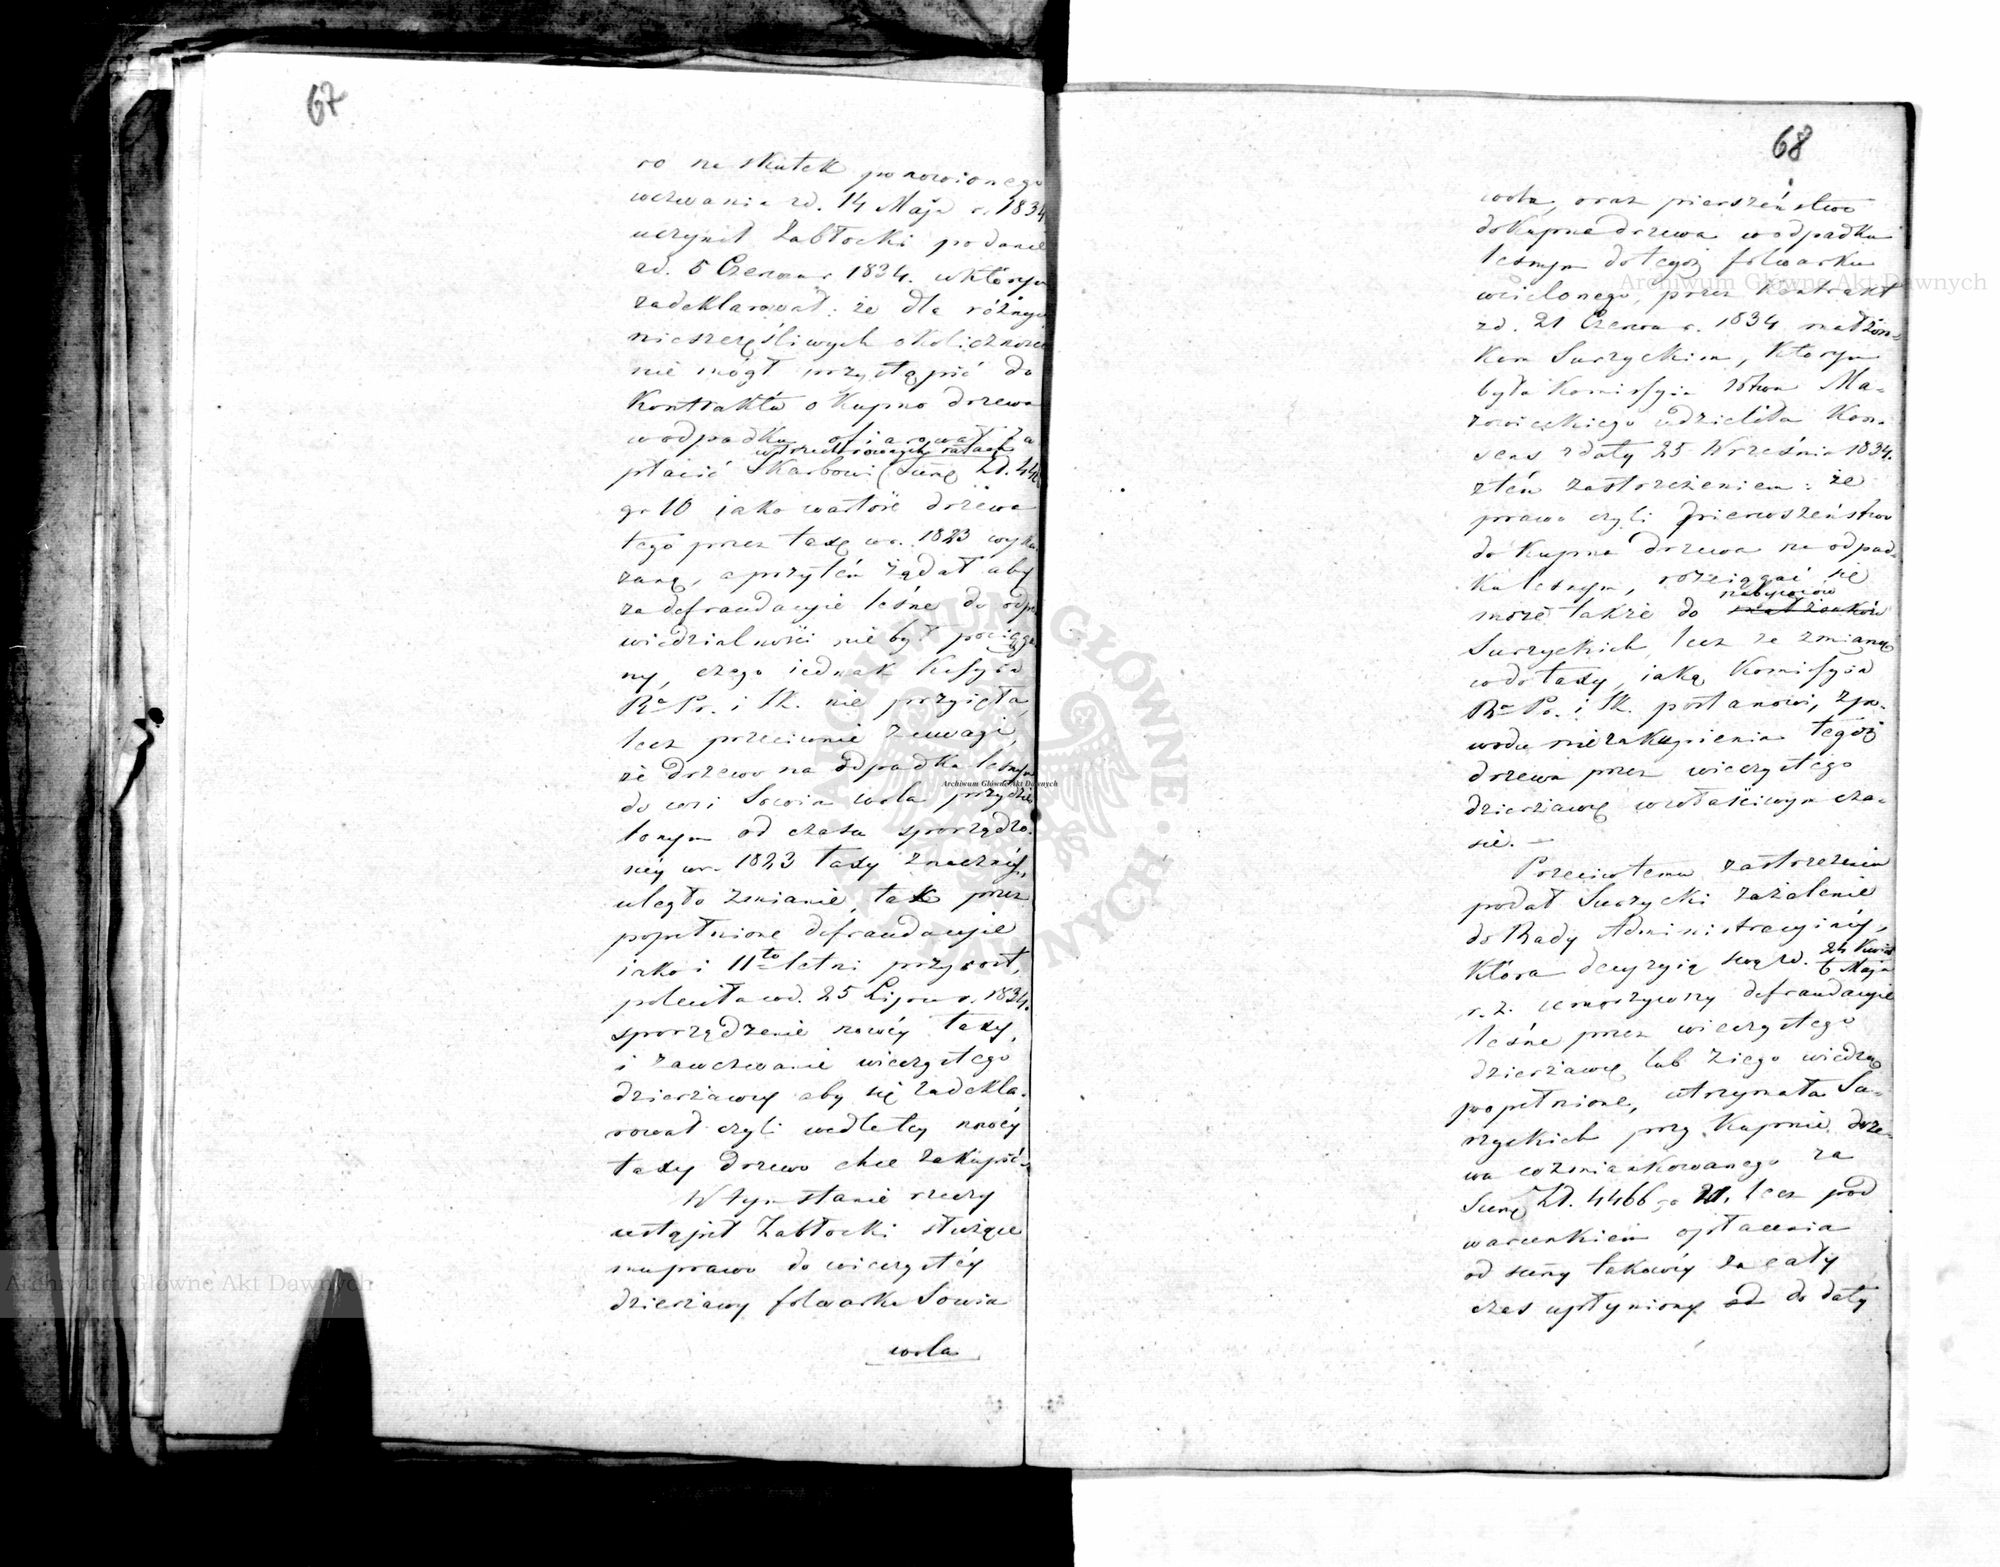 67
ro na skutek ponowionego
wezwania zd. 14 Maja r. 1834
uczynił Zabłocki podanie
zd. 5 Czerwca r. 1834. w którym
zadeklarował: że dla różnych
nieszczęśliwych okoliczności
nie mógł przystąpić do
Kontraktu o Kupno drzewa
w odpadku, ofiarował za
w trzech rocznych ratach
płacić Skarbowi (Sumę Zł. 44
gr 10 jako wartość drzewa
tego przez taxę w r. 1823 wyka
zaną, a przytém żądał aby
za defraudacyie leśne do odpo
wiedzialności nie był pociągn
ny, czego iednak Kosyia
Rwa Pr. i Sk. nie przyięła,
lecz przeciwnie z uwagi,
że drzewo na odpadku leśnym
do wsi Sowia wola przydzie
lonym od czasu sporządzo
néy w r. 1823 taxy znacznéy
uległo zmianie, tak przez
popełnione defraudacyie
iako i 11to letni przyrost,
poleciła w d. 25 Lipca r. 1834.
sporządzenie nowéy taxy,
i zawezwanie wieczystego
dzierżawcy aby się zadekla-
rował czyli wedle téy nowéy
taxy drzewo chce zakupić.
W tym stanie rzeczy
ustąpił Zabłocki służące
mu prawo do wieczystéy
dzierżawy folwarku Sowia
wola
68
wola, oraz pierszeństwo
do Kupna drzewa w odpadku
leśnym do tegoż folwarku
wcielonego, przez Kontrakt
zd. 21 Czerwca r. 1834 małżon-
kom Surzyckim, Którym
była Komissyia Wdztwa Ma-
zowieckiego udzieliła Kon-
sens z daty 25 Września 1834.
z tém zastrzeżeniem: że
prawo czyli pierwszeństwo
do Kupna drzewa na odpad-
ku leśnym, rozciągać się
nabywców
może także do małżonków
Surzyckich, lecz ze zmianą
co do taxy, iaką Komissyia
Rwa Pr. i Sk. postanowi, z po-
wodu niezakupienia tegoż
drzewa przez wieczystego
dzierżawcę w właściwym cza-
sie. —
Przeciw temu zastrzeżeniu
podał Surzycki zażalenie
do Rady Administracyinéy,
Która decyzyią swą z d. 24 Kwiet
6 Maja
r. z. umorzywszy defraudacyie
leśne przez wieczystego
dzierżawcę lub z iego wiedzą
popełnione, utrzymała Su-
rzyckich przy Kupnie drze-
wa wzmiankowanego za
Sumę Zł. 4466 gr 21, lecz pod
warunkiem opłacenia
od sumy takowéy za cały
czas upłyniony od do daty
Archiwum Główne Akt Dawnych
Archiwum Główne Akt Dawnych
Archiwum Główne Akt Dawnych
ARCHIWUM GŁÓWNE AKT DAWNYCH